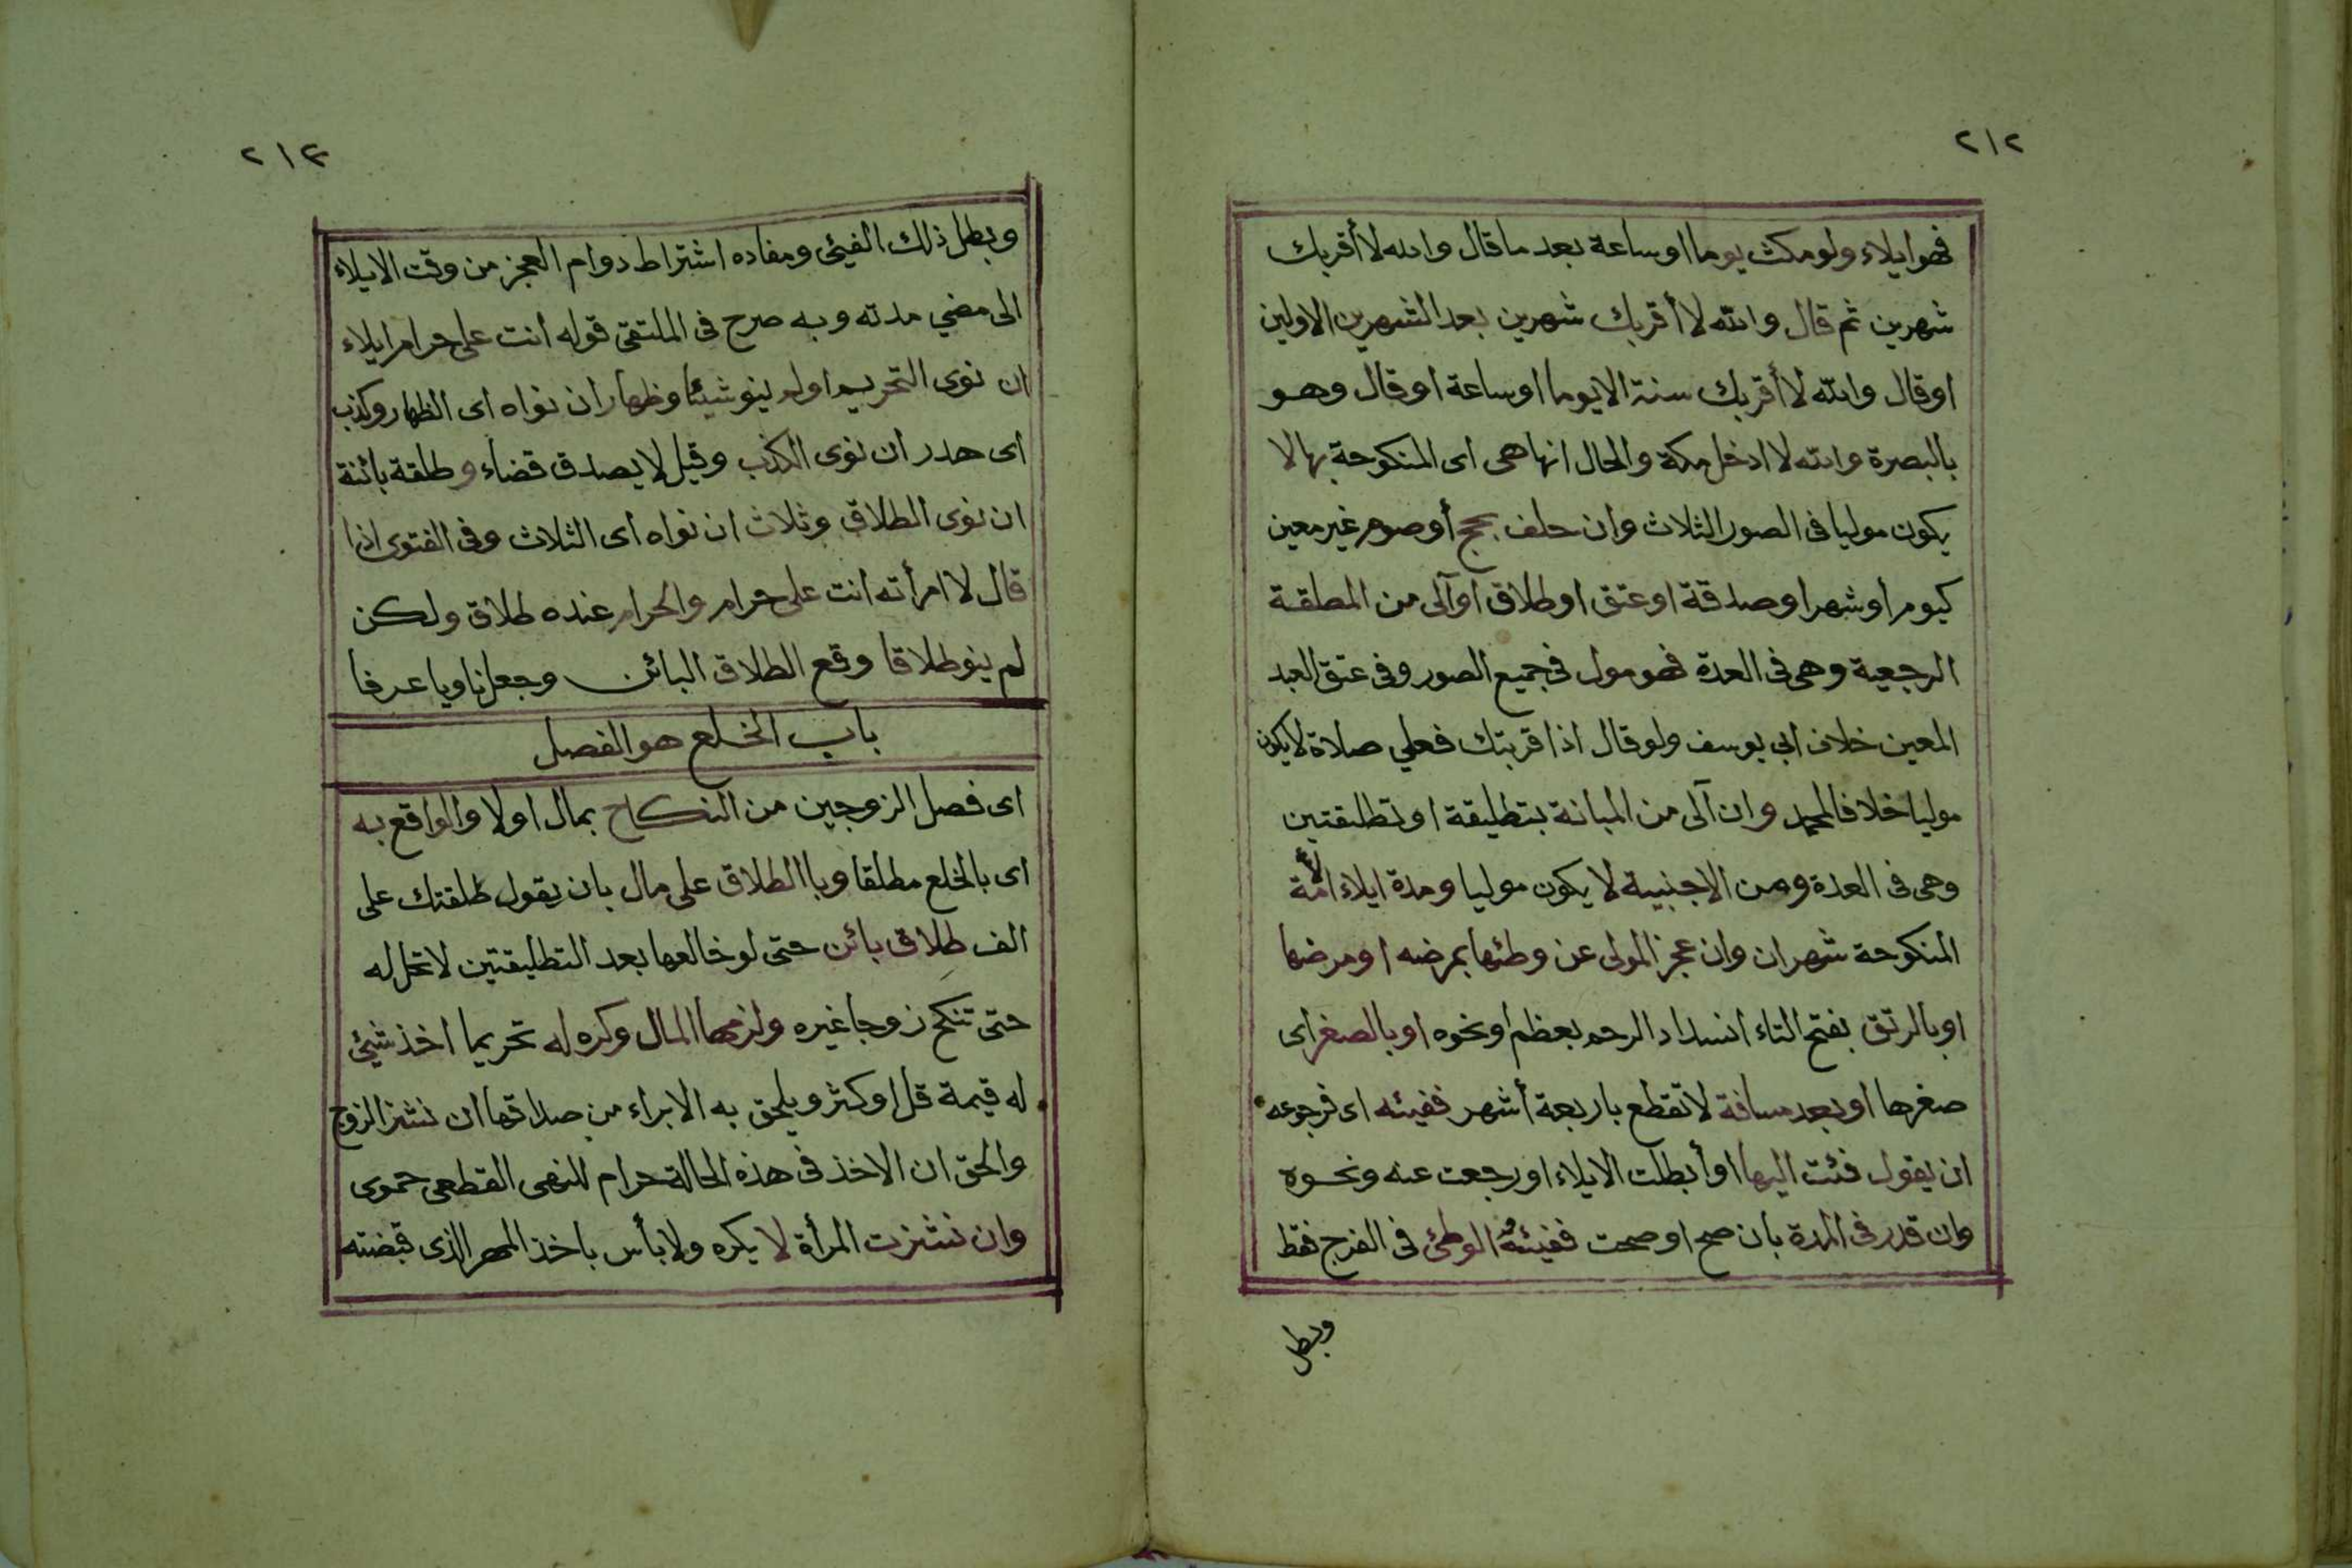 ٢١٢
فهو ايلاء ولو مكث يوما او ساعة بعد ما قال والله لا أقربك
شهرين ثم قال والله لا أقربك شهرين بعد الشهرين الاولين
او قال والله لا أقربك سنة الا يوما او ساعة او قال وهو
بالبصرة والله لا ادخل مكة والحال انها هى اى المنكوحة بها لا
يكون موليا فى الصور الثلاث وان حلف بحج أو صوم غير معين
كيوم أو شهر او صدقة او عتق او طلاق او آلى من المطلقة
الرجعية وهى فى العدة فهو مول فى جميع الصور وفى عتق العبد
المعين خلاف ابى يوسف ولو قال اذا قربتك فعلي صلاة لا يكون
موليا خلافا لمحمد وان آلى من المبانة بتطليقة او تطليقتين
وهى فى العدة ومن الاجنبية لا يكون موليا ومدة ايلاء الأمة
المنكوحة شهران وان عجز المولى عن وطئها بمرضه او مرضها
او بالرتق بفتح التاء انسداد الرحم بعظم او نحوه او بالصغر اى
صغرها او بعد مسافة لا تقطع باربعة أشهر ففيئه اى فرجوعه
ان يقول فئت اليها او أبطلت الايلاء او رجعت عنه ونحوه
وان قدر فى المدة بان صح او صحت ففيئهُ الوطئ فى الفرج فقط
وبطل
٢١٣
وبطل ذلك الفيئ ومفاده اشتراط دوام العجز من وقت الايلاء
الى مضي مدته وبه صرح فى الملتقى قوله أنت على حرام ايلاء
ان نوى التحريم او لم ينو شيئا وظهار ان نواه اى الظهار وكذب
اى هدر ان نوى الكذب وقيل لا يصدق قضاء وطلقة بائنة
ان نوى الطلاق وثلاث ان نواه اى الثلاث وفى الفتوى اذا
قال لا امرأته انت على حرام والحرام عنده طلاق ولكن
لم ينو طلاقا وقع الطلاق البائن وجعل ناويا عرفا
باب الخلع هو الفصل
اى فصل الزوجين من النكاح بمال او لا والواقع به
اى بالخلع مطلقا وبا الطلاق على مال بان يقول طلقتك على
الف طلاق بائن حتى لو خالعها بعد التطليقتين لا تحل له
حتى تنكح زوجا غيره ولزمها المال وكره له تحريما اخذ شيئ
له قيمة قل او كثر ويلحق به الابراء من صداقها ان نشز الزوج
والحق ان الاخذ فى هذه الحالة حرام للنهى القطعى حموى
وان نشزت المرأة لا يكره ولا بأس باخذ المهر الذى قبضته